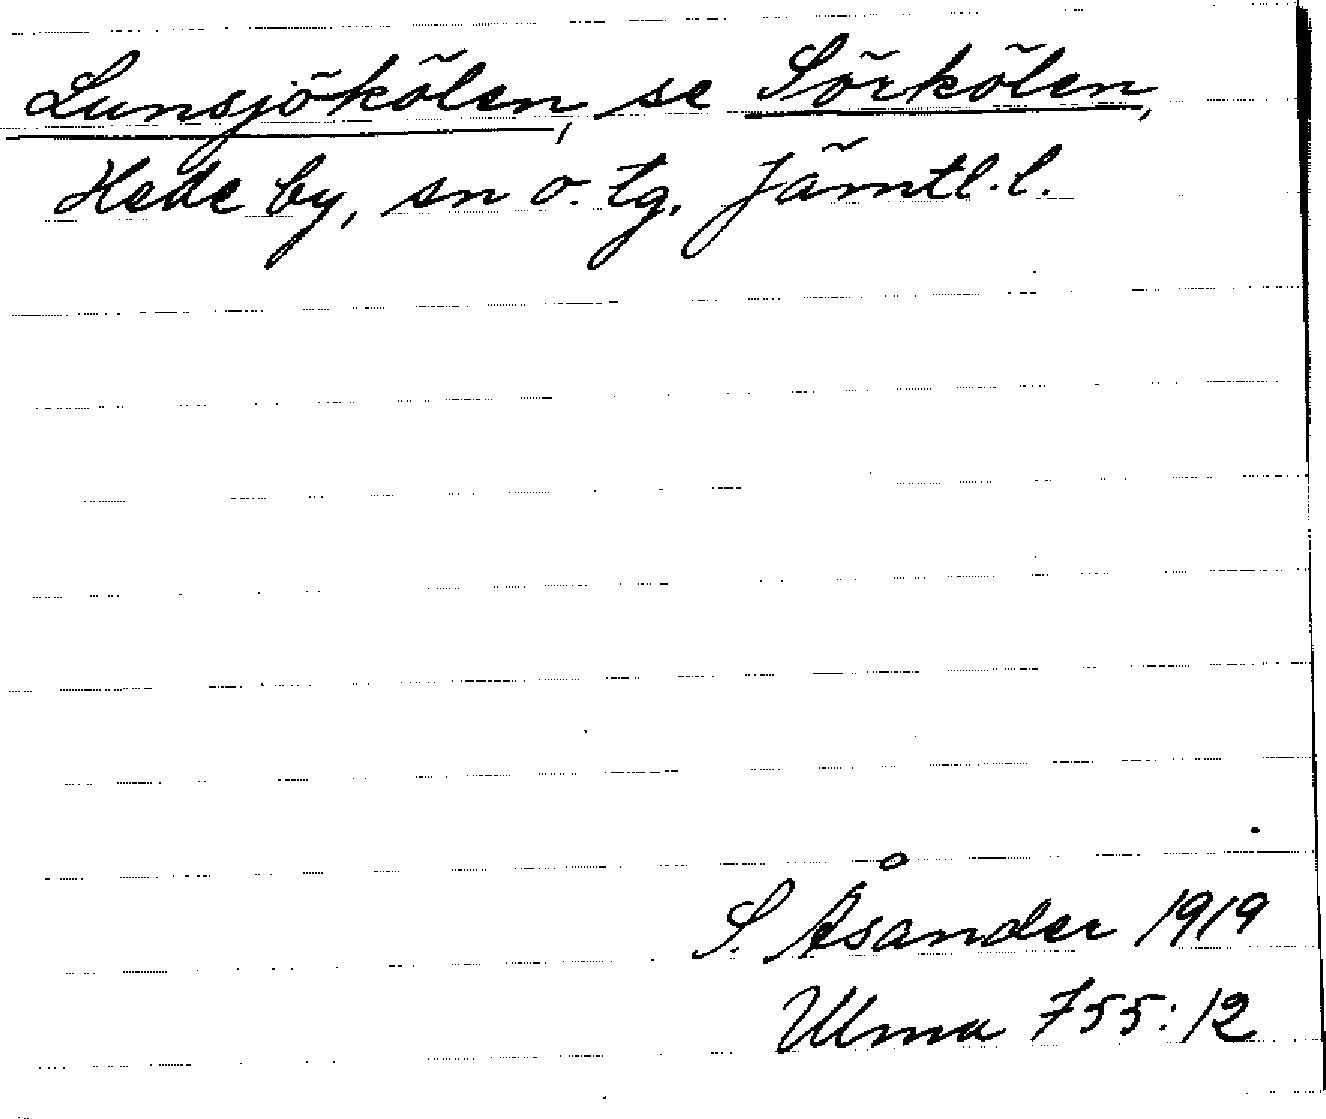 Lunsjökölen, se Sörkölen,
Hede by, sn o. tg, Jämtl. l.
S. Åsander 1919
Ulma 755:12